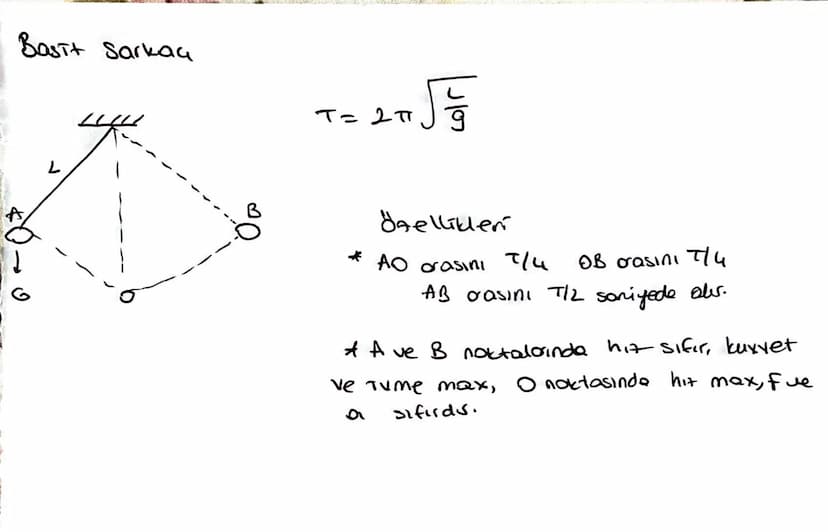 Basit Sarkaç
T = 2π √L/g
L
A
B
G
O
Özellikleri
* AO arasını T/4 OB arasını T/4
AB arasını T/2 saniyede alır.
* A ve B noktalarında hız sıfır, kuvvet
ve ivme max, O noktasında hız max, F ve
a sıfırdır.